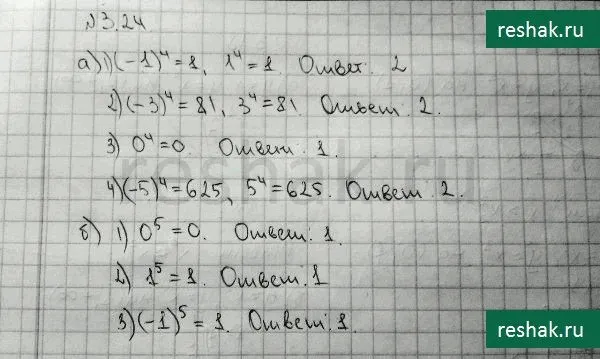 reshak.ru
№3.24
а) 1) (-1)⁴ = 1, 1⁴ = 1. Ответ: 2
2) (-3)⁴ = 81, 3⁴ = 81. Ответ: 2.
3) 0⁴ = 0. Ответ: 1.
reshak.ru
4) (-5)⁴ = 625, 5⁴ = 625. Ответ: 2.
б) 1) 0⁵ = 0. Ответ: 1.
2) 1⁵ = 1. Ответ: 1
3) (-1)⁵ = 1. Ответ: 1.
reshak.ru